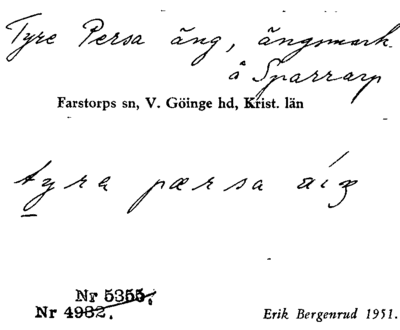 Tyre Persa äng, ängsmark
å Sparrarp
Farstorps sn, V. Göinge hd, Krist. län
tyra pærsa
Nr 5355.
Nr 4982.
Erik Bergenrud 1951.